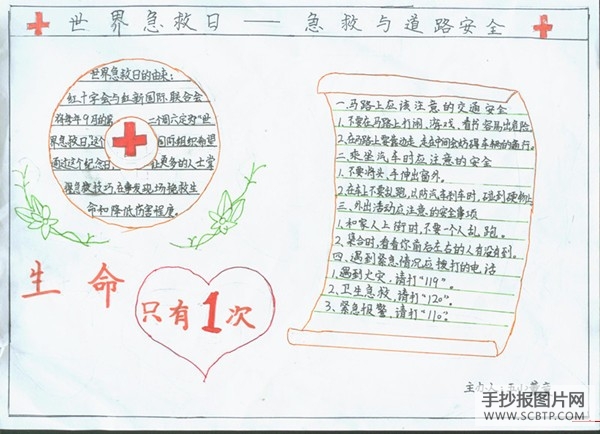 世界急救日 —— 急救与道路安全
世界急救日的由来：
红十字会与红新国际联合会
将每年9月的第二个周六定为"世
界急救日"这个国际组织希望
通过这个纪念日，让更多的人士掌
握急救技巧，在事发现场挽救生
命和降低伤害程度。
生命
只有1次
一.马路上应该注意的交通安全
1.不要在马路上打闹、游戏、看书容易出危险。
2.在马路上要靠边走，走在中间会妨碍车辆的通行。
二.乘坐汽车时应注意的安全
1.不要将头、手伸出窗外。
2.在车上不要乱跑，以防汽车刹车时，碰到硬物上
三.外出活动应注意的安全事项
1.和家人上街时，不要一个人乱跑。
2.集合时，看看你前后左右的人有没有到。
四.遇到紧急情况应拨打的电话
1.遇到火灾，请打"119"。
2.卫生急救，请打"120"。
3.紧急报警，请打"110"。
主办人：
手抄报图片网
WWW.SCBTP.COM